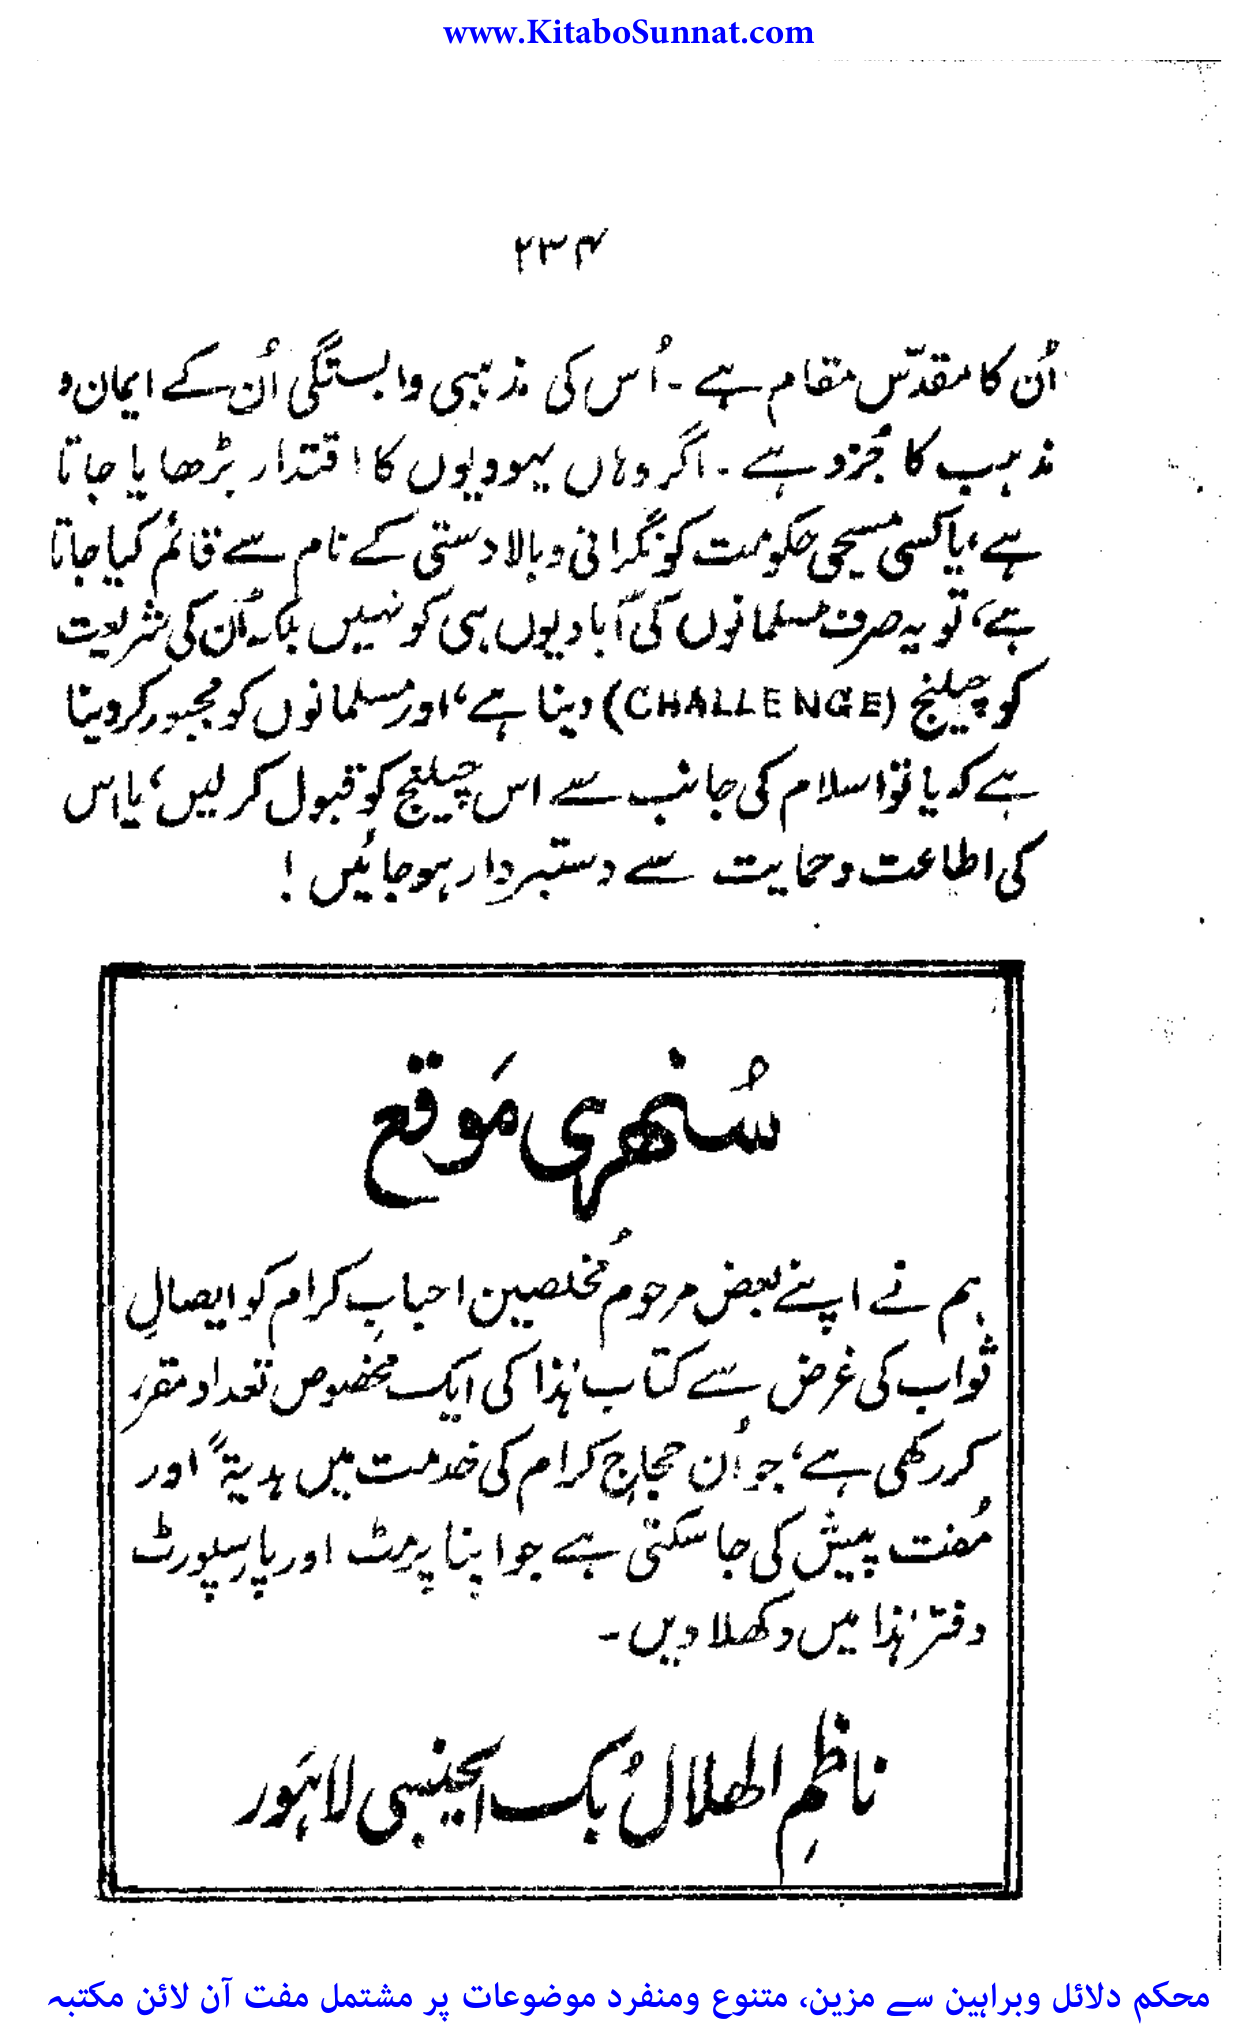 www.KitaboSunnat.com
۲۳۴
اُن کا مقدّس مقام ہے ۔ اُس کی مذہبی وابستگی اُن کے ایمان و
مذہب کا جُزو ہے ۔ اگر وہاں یہودیوں کا اقتدار بڑھایا جاتا
ہے، یا کسی مسیحی حکومت کو نگرانی و بالادستی کے نام سے قائم کیا جاتا
ہے، تو یہ صرف مسلمانوں کی آبادیوں ہی کو نہیں بلکہ اُن کی شریعت
کو چیلنج (CHALLENGE) دینا ہے، اور مسلمانوں کو مجبور کردینا
ہے کہ یا تو اسلام کی جانب سے اس چیلنج کو قبول کرلیں، یا اس
کی اطاعت و حمایت سے دستبردار ہوجائیں !
سُنھری مَوقع
ہم نے اپنے بعض مرحوم مُخلصین احبابِ کرام کو ایصالِ
ثواب کی غرض سے کتاب ہٰذا کی ایک مخصوص تعداد مقرر
کر رکھی ہے، جو اُن حجاجِ کرام کی خدمت میں ہدیۃً اور
مُفت پیش کی جاسکتی ہے جو اپنا پرمٹ اور پاسپورٹ
دفتر ہٰذا میں دکھلا دیں ۔
ناظمِ الھلال بُک ایجنسی لاہَور
محکم دلائل وبراہین سے مزین، متنوع ومنفرد موضوعات پر مشتمل مفت آن لائن مکتبہ